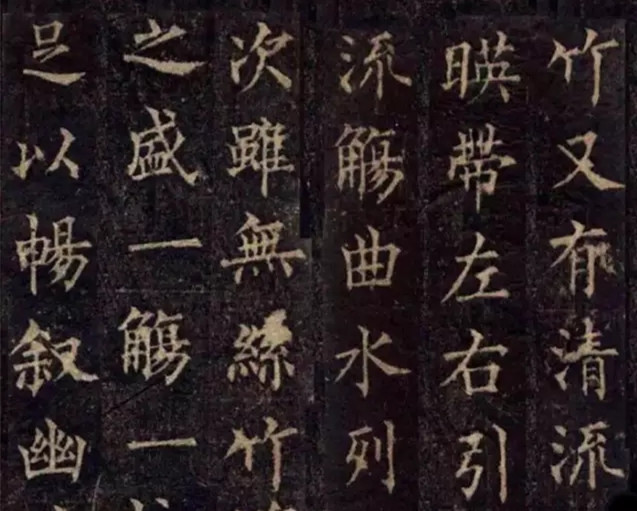 竹又有清流
暎帶左右引
流觴曲水列
次雖無絲竹
之盛一觴一
足以暢叙幽